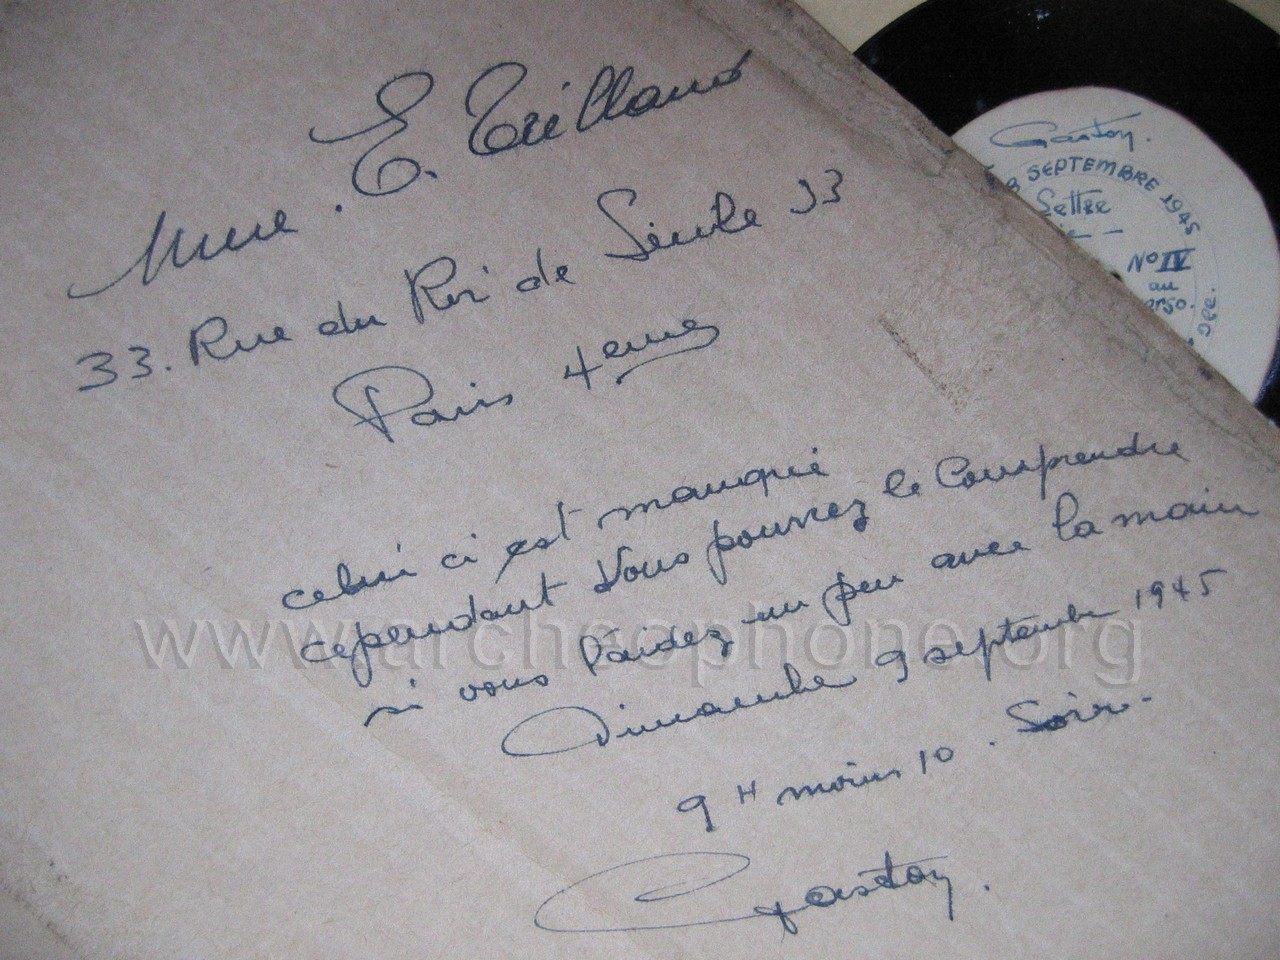 Mme. E. Trilland
33. Rue du Roi de Sicile 33
Paris 4eme
celui ci est manqué
cependant vous pourrez le comprendre
si vous l'aidez un peu avec la main
Dimanche 9 septembre 1945
9H moins 10. Soir.-
Gaston.
www.archeophone.org
Gaston.
SEPTEMBRE 1945
Lettre
No IV
au